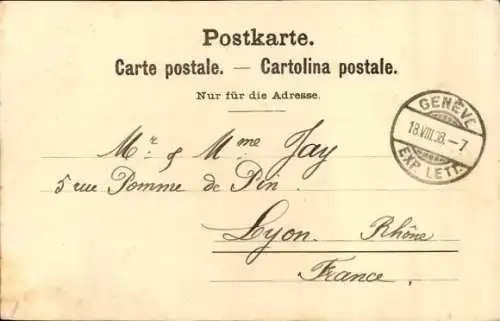 Postkarte.
Carte postale. — Cartolina postale.
Nur für die Adresse.
GENÈVE
18.VIII.98.–7
EXP. LETT.
Mr & Mme Jay
5 rue Pomme de Pin.
Lyon. Rhône
France.